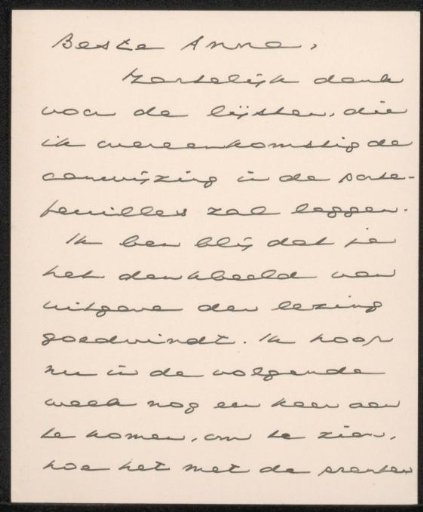 Beste Anne,
Hartelijk dank
voor de lijsten, die
ik overeenkomstig de
aanwijzing in de porte-
feuilles zal leggen.
Ik ben blij dat je
het denkbeeld van
uitgave der lezing
goedvindt. Ik hoop
nu in de volgende
week nog een keer aan
te komen, om te zien,
hoe het met de prenten